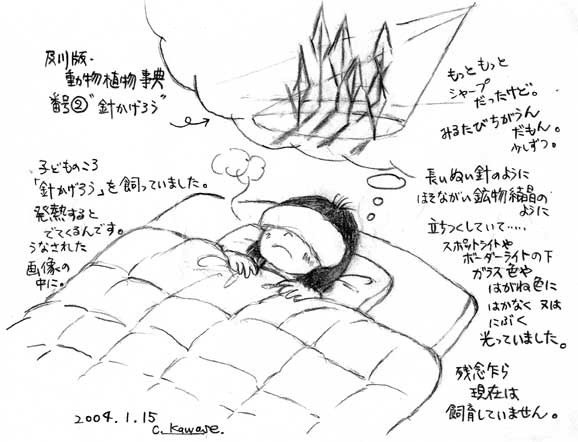 及川版・
動物植物事典
番号②“針かげろう”
もっともっと
シャープ
だったけど。
みるたびちがうん
だもん。
少しずつ。
子どものころ
「針かげろう」を飼っていました。
発熱すると
でてくるんです。
うなされた
画像の
中に。
長いぬい針のように
ほそながい鉱物結晶の
ように
立ちつくしていて‥‥‥
スポットライトや
ボーダーライトの下
ガラス色や
はがね色に
はかなく又は
にぶく
光っていました。
残念乍ら
現在は
飼育していません。
2004.1.15
C. Kawase.